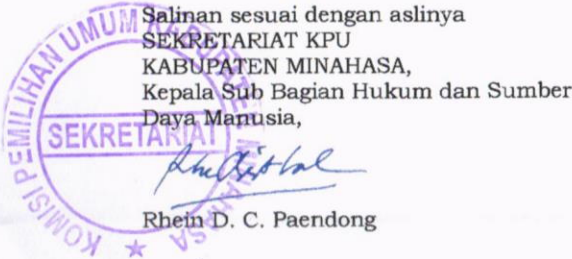 Salinan sesuai dengan aslinya
SEKRETARIAT KPU
KABUPATEN MINAHASA,
Kepala Sub Bagian Hukum dan Sumber
Daya Manusia,
Rhein D. C. Paendong
KOMISI PEMILIHAN UMUM KABUPATEN MINAHASA
SEKRETARIAT